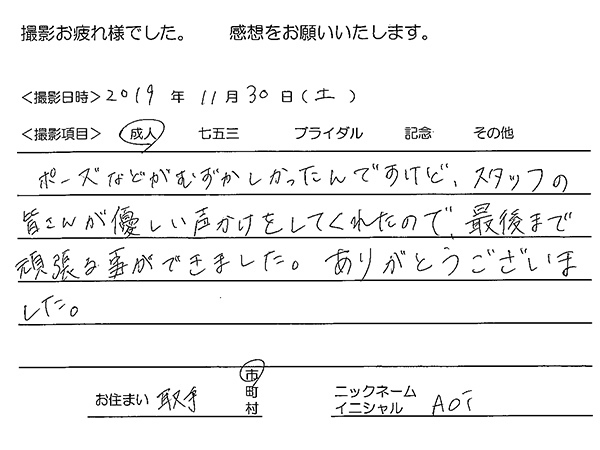 撮影お疲れ様でした。 感想をお願いいたします。
＜撮影日時＞ 2019 年 11 月 30 日（土）
＜撮影項目＞ 成人 七五三 ブライダル 記念 その他
ポーズなどがむずかしかったんですけど、スタッフの
皆さんが優しい声かけをしてくれたので、最後まで
頑張る事ができました。ありがとうございま
した。
お住まい 取手 市町村 ニックネーム イニシャル AOI